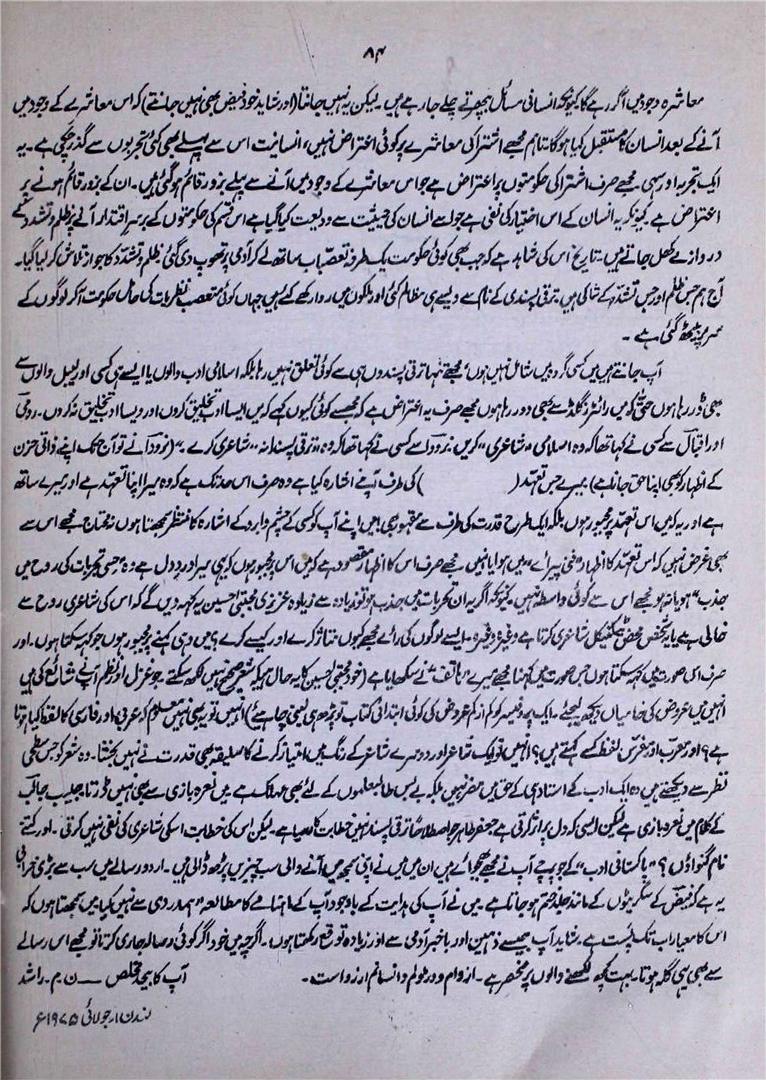 ۸۴
معاشرہ وجود میں آکر رہے گا کیونکہ انسانی مسائل بپھرتے چلے جا رہے ہیں۔ لیکن یہ نہیں جانتا (اور شاید خود فیض بھی نہیں جانتے) کہ اس معاشرے کے وجود میں
آنے کے بعد انسان کا مستقبل کیا ہوگا تاہم مجھے اشتراکی معاشرے پر کوئی اعتراض نہیں، انسانیت اس سے پہلے بھی کئی تجربوں سے گذر چکی ہے۔ یہ
ایک تجربہ اور سہی۔ مجھے صرف اشتراکی حکومتوں پر اعتراض ہے جو اس معاشرے کے وجود میں آنے سے پہلے بزور قائم ہو گئی ہیں۔ ان کے بزور قائم ہونے پر
اعتراض ہے۔ کیونکہ یہ انسان کے اس اختیار کی نفی ہے جو اسے انسان کی حیثیت سے ودیعت کیا گیا ہے اس قسم کی حکومتوں کے برسر اقتدار آنے پر ظلم و تشدد کے
دروازے کھل جاتے ہیں۔ تاریخ اس کی شاہد ہے کہ جب بھی کوئی حکومت یک طرفہ تعصبات ساتھ لے کر آدمی پر تھوپ دی گئی ظلم و تشدد کا جواز تلاش کر لیا گیا۔
آج ہم جس ظلم اور جس تشدد کے شاکی ہیں، ترقی پسندی کے نام سے ویسے ہی مظالم کئی اور ملکوں میں روا رکھے گئے ہیں جہاں کوئی متعصب نظریات کی حامل حکومت آکر لوگوں کے
سر پر بیٹھ گئی ہے۔
آپ جانتے ہیں میں کسی گروہ میں شامل نہیں ہوں، مجھے تنہا ترقی پسندوں ہی سے کوئی تعلق نہیں رہا بلکہ اسلامی ادب والوں یا ایسے ہی کسی اور لیبل والوں سے
بھی ڈر رہا ہوں حتیٰ کہ میں رائٹرز گلڈ سے بھی دور رہا ہوں مجھے صرف یہ اعتراض ہے کہ مجھ سے کوئی کیوں کہے کہ میں ایسا ادب تخلیق کروں اور ویسا ادب تخلیق نہ کروں۔ رومی
اور اقبال سے کسی نے کہا تھا کہ وہ اسلامی "شاعری" کریں۔ نرودا سے کسی نے کہا تھا کہ وہ "ترقی پسندانہ" شاعری کرے۔ "(نرودا نے تو آج تک اپنے ذاتی حزن
کے اظہار کو بھی اپنا حق جانا ہے) میرے جس تعہد ( ) کی طرف آپ نے اشارہ کیا ہے وہ صرف اس حد تک ہے کہ وہ میرا اپنا تعہد ہے اور میرے ساتھ
ہے اور یہ کہ میں اس تعہد پر مجبور ہوں بلکہ ایک طرح قدرت کی طرف سے مقہور بھی۔ میں اپنے آپ کو کسی کے چشم و ابرو کے اشارہ کا منتظر سمجھتا ہوں نہ محتاج مجھے اس سے
بھی غرض نہیں کہ اس تعہد کا اظہار "فنی پیرائے" میں ہوا یا نہیں۔ مجھے صرف اس کا اظہار مقصود ہے کہ میں اس پر مجبور ہوں کہ یہی میرا درد دل ہے وہ "حسی تجربات کی روح میں
جذب" ہو یا نہ ہو مجھے اس سے کوئی واسطہ نہیں۔ کیونکہ اگر یہ ان تجربات میں جذب ہو تو زیادہ سے زیادہ عزیزی مجتبیٰ حسین یہ کہہ دیں گے کہ اس کی شاعری روح سے
خالی ہے یا یہ شخص محض ٹیکنیکل شاعری کرتا ہے وغیرہ وغیرہ۔ ایسے لوگوں کی رائے مجھے کیوں متاثر کرے اور کیسے کرے؟ میں وہی کہنے پر مجبور ہوں جو کہہ سکتا ہوں۔ اور
صرف اس صورت میں کہہ سکتا ہوں جس صورت میں کہنا مجھے میرے "ہاتف" نے سکھایا ہے (خود مجتبیٰ حسین کا یہ حال ہے کہ شعر صحیح نہیں لکھ سکتے۔ جو غزل اور نظم آپ نے شائع کی ہیں
انہیں میں عروض کی خامیاں دیکھ لیجئے۔ ایک پروفیسر کو کم از کم عروض کی کوئی ابتدائی کتاب تو پڑھ ہی لینی چاہئے) انہیں تو یہ بھی نہیں معلوم کہ عربی اور فارسی کا لفظ کیا ہوتا
ہے؟ اور معرب اور مفرس لفظ کسے کہتے ہیں؟ انہیں تو ایک شاعر اور دوسرے شاعر کے رنگ میں امتیاز کرنے کا سلیقہ بھی قدرت نے نہیں بخشا۔ وہ شعر کو جس سطحی
نظر سے دیکھتے ہیں وہ ایک ادب کے استاد ہی کے حق میں مضر نہیں بلکہ بے بس طالبعلموں کے لئے بھی مہلک ہے۔ میں نعرہ بازی سے بھی نہیں ڈرتا، حبیب جالب
کے کلام میں نعرہ بازی ہے لیکن ایسی کہ دل پر اثر کرتی ہے جعفر طاہر جو اصطلاحاً ترقی پسند نہیں خطابت کا رسیا ہے۔ لیکن اس کی خطابت اسکی شاعری کی نفی نہیں کرتی۔ اور کتنے
نام گنواؤں؟ "پاکستانی ادب" کے جو پرچے آپ نے مجھے بھجوائے ہیں ان میں میں نے اپنی سمجھ میں آنے والی سب چیزیں پڑھ ڈالی ہیں۔ اردو رسالے میں سب سے بڑی خرابی
یہ ہے کہ فیض کے سگریٹوں کے مانند جلد ختم ہو جاتا ہے۔ میں نے آپ کی ہدایت کے باوجود آپ کے ماہنامے کا مطالعہ "ہمدردی سے نہیں کیا۔ میں سمجھتا ہوں کہ
اس کا معیار اب تک پست ہے۔ شاید آپ جیسے ذہین اور باخبر آدمی سے اور زیادہ توقع رکھتا ہوں۔ اگرچہ میں خود اگر کوئی رسالہ جاری کرتا تو مجھے اس رسالے
سے بھی یہی گلہ ہوتا۔ بہت کچھ لکھنے والوں پر منحصر ہے۔ از دام و دد ملولم و انسانم آرزو است۔ آپ کا بیحد مخلص — ن۔م۔ راشد
لندن ۱ر جولائی ۱۹۷۵ء